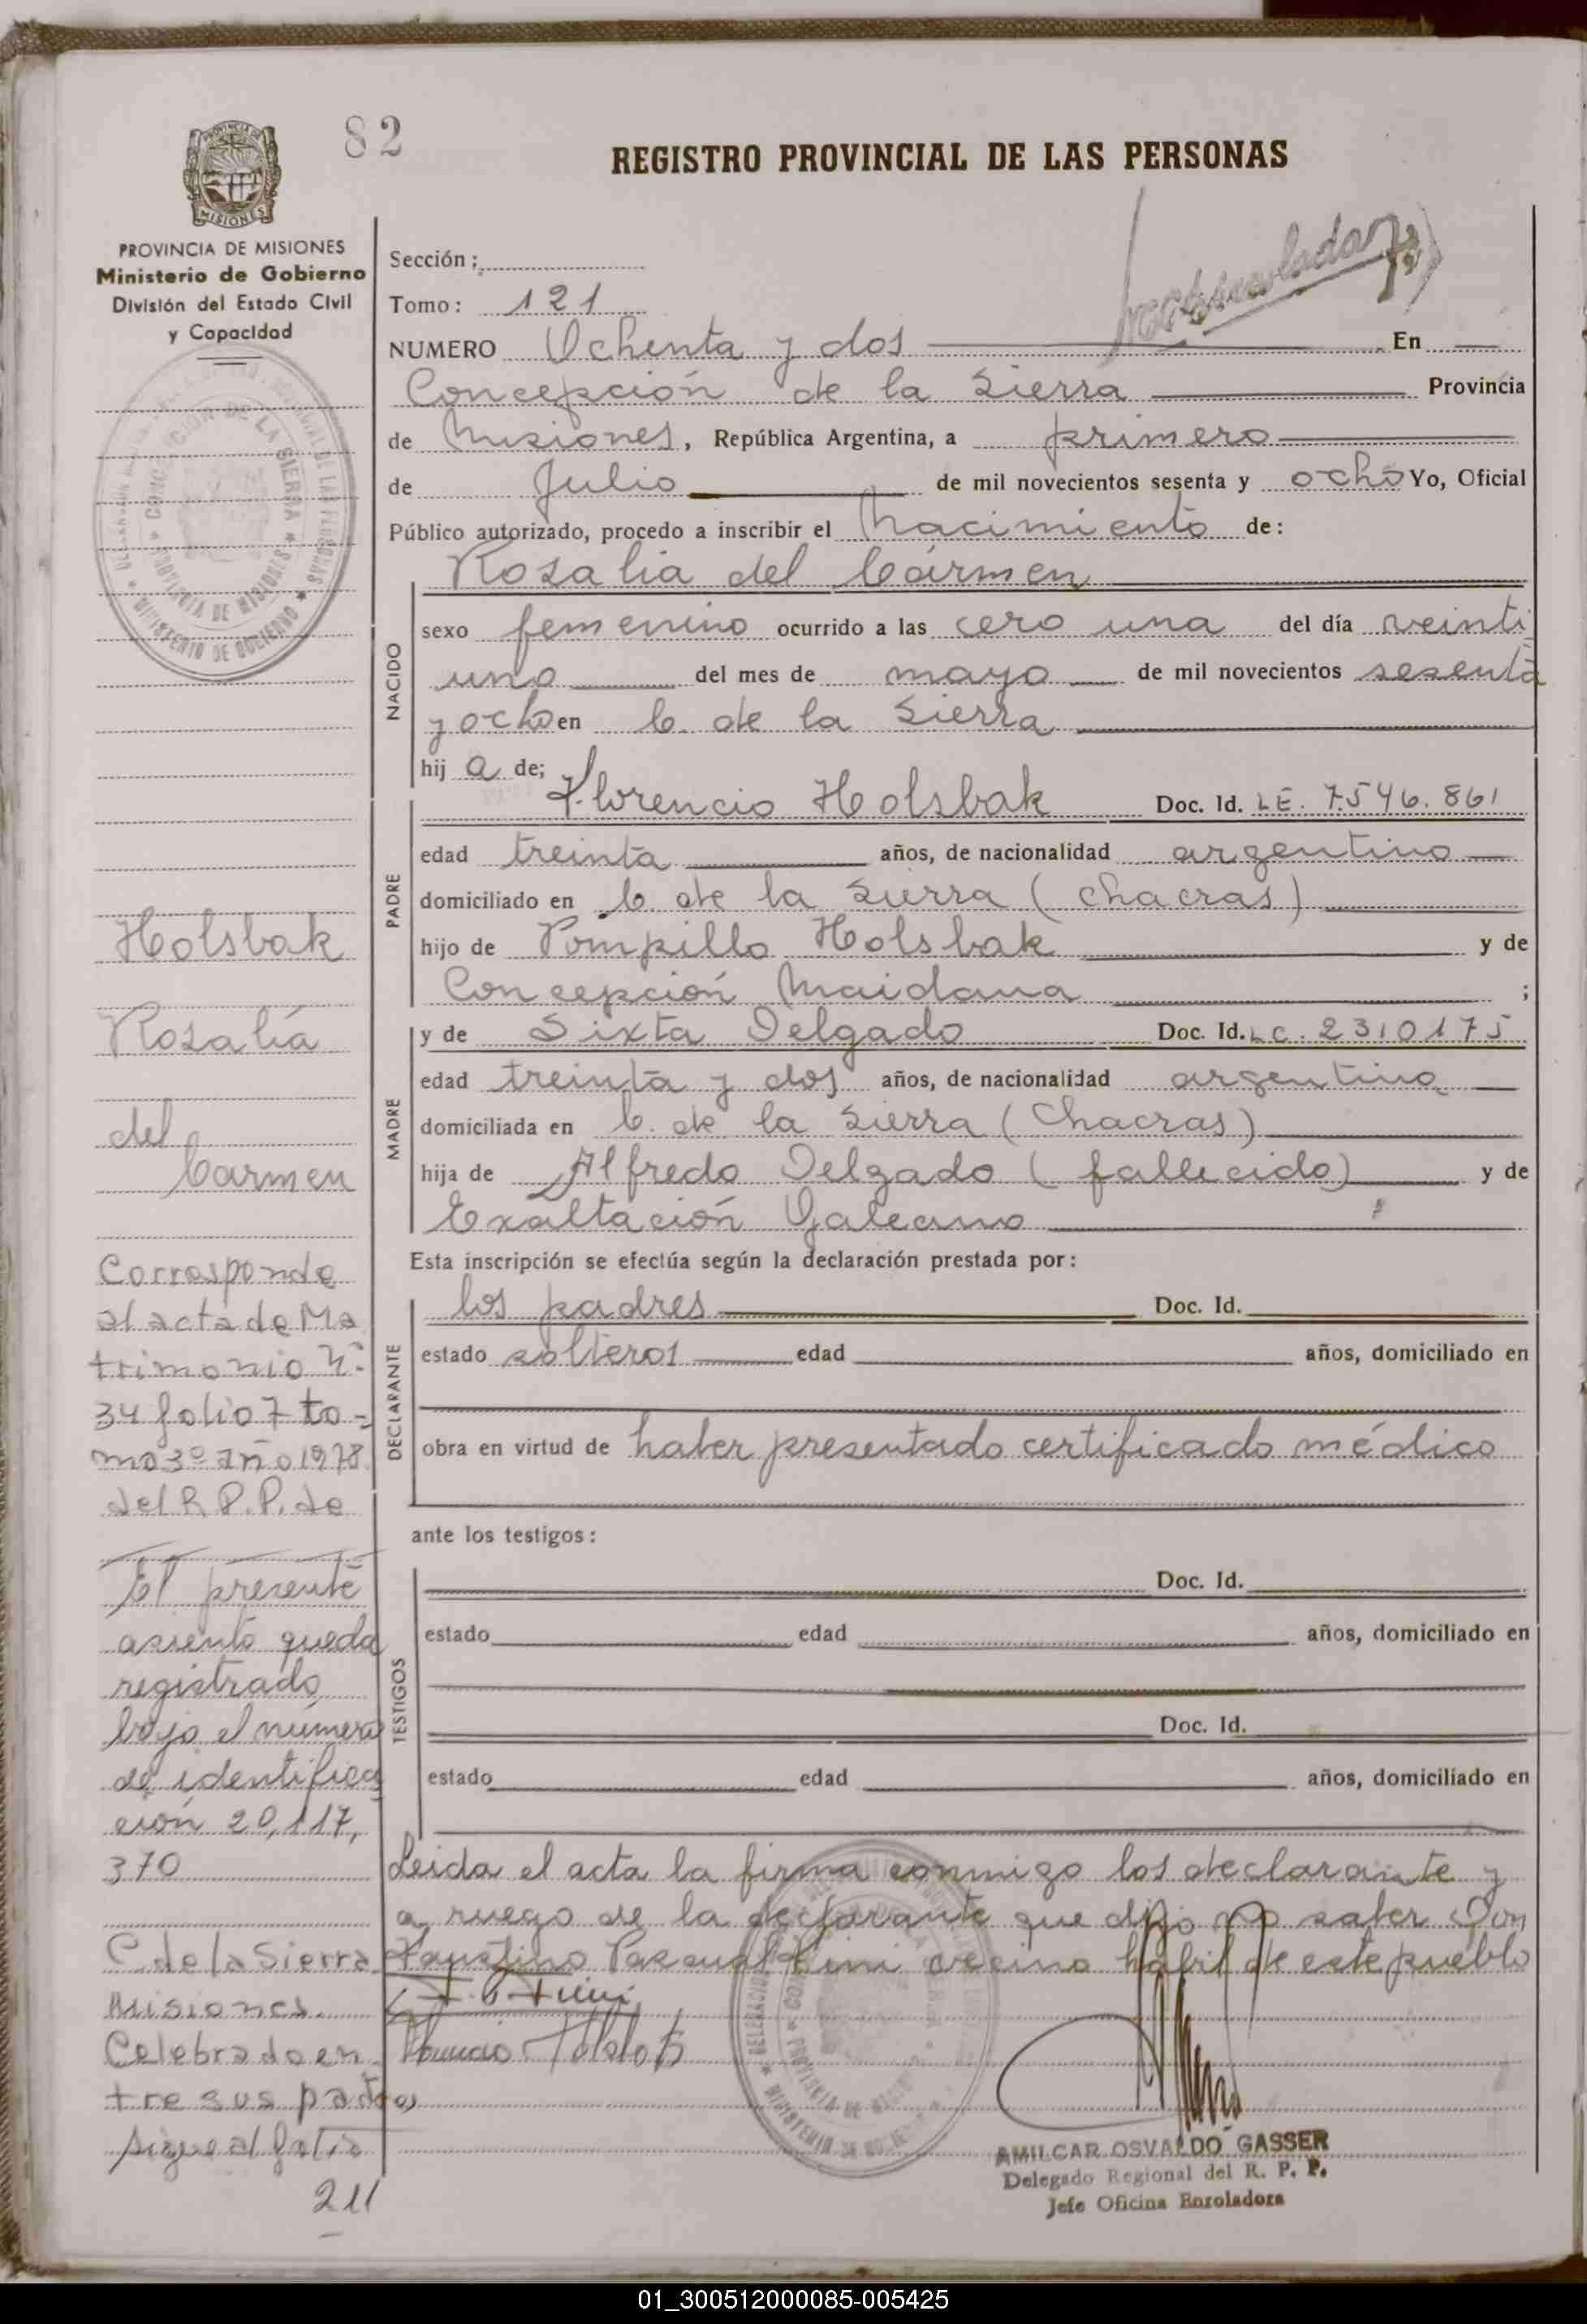 82
REGISTRO PROVINCIAL DE LAS PERSONAS
MISIONES
PROVINCIA DE MISIONES
Ministerio de Gobierno
División del Estado Civil
y Capacidad
Sección:
Tomo: 121
NUMERO Ochenta y dos En
Concepción de la Sierra Provincia
de Misiones, República Argentina, a primero
de Julio de mil novecientos sesenta y ocho Yo, Oficial
Público autorizado, procedo a inscribir el Nacimiento de:
Rosalia del Cármen
NACIDO
sexo femenino ocurrido a las cero una del día veinti
uno del mes de mayo de mil novecientos sesenta
y ocho en C. de la Sierra
hij a de;
PADRE
Florencio Holsbak Doc. Id. LE. 7.546.861
edad treinta años, de nacionalidad argentino
domiciliado en C. de la Sierra (chacras)
hijo de Pompillo Holsbak y de
Concepción Maidana ;
MADRE
y de Sixta Delgado Doc. Id. LC. 2310175
edad treinta y dos años, de nacionalidad argentina
domiciliada en C. de la Sierra (Chacras)
hija de Alfredo Delgado (fallecido) y de
Exaltación Galeano
Esta inscripción se efectúa según la declaración prestada por:
DECLARANTE
los padres Doc. Id.
estado solteros edad años, domiciliado en
obra en virtud de haber presentado certificado médico
ante los testigos:
TESTIGOS
Doc. Id.
estado edad años, domiciliado en
Doc. Id.
estado edad años, domiciliado en
Leida el acta la firma conmigo los declarante y
a ruego de la declarante que dijo no saber Don
Faustino Pascual vecino habil de este pueblo
AMILCAR OSVALDO GASSER
Delegado Regional del R. P. P.
Jefe Oficina Enroladora
Holsbak
Rosalía
del
Carmen
Corresponde
al acta de Ma
trimonio Nº
34 folio 7 to-
mo 3º año 1978
del R.P.P. de
El presente
asiento queda
registrado
bajo el número
de identifica
ción 20,117,
370
C. de la Sierra
Misiones.
Celebrado en
tre sus padres
sigue al folio
211
01_300512000085-005425